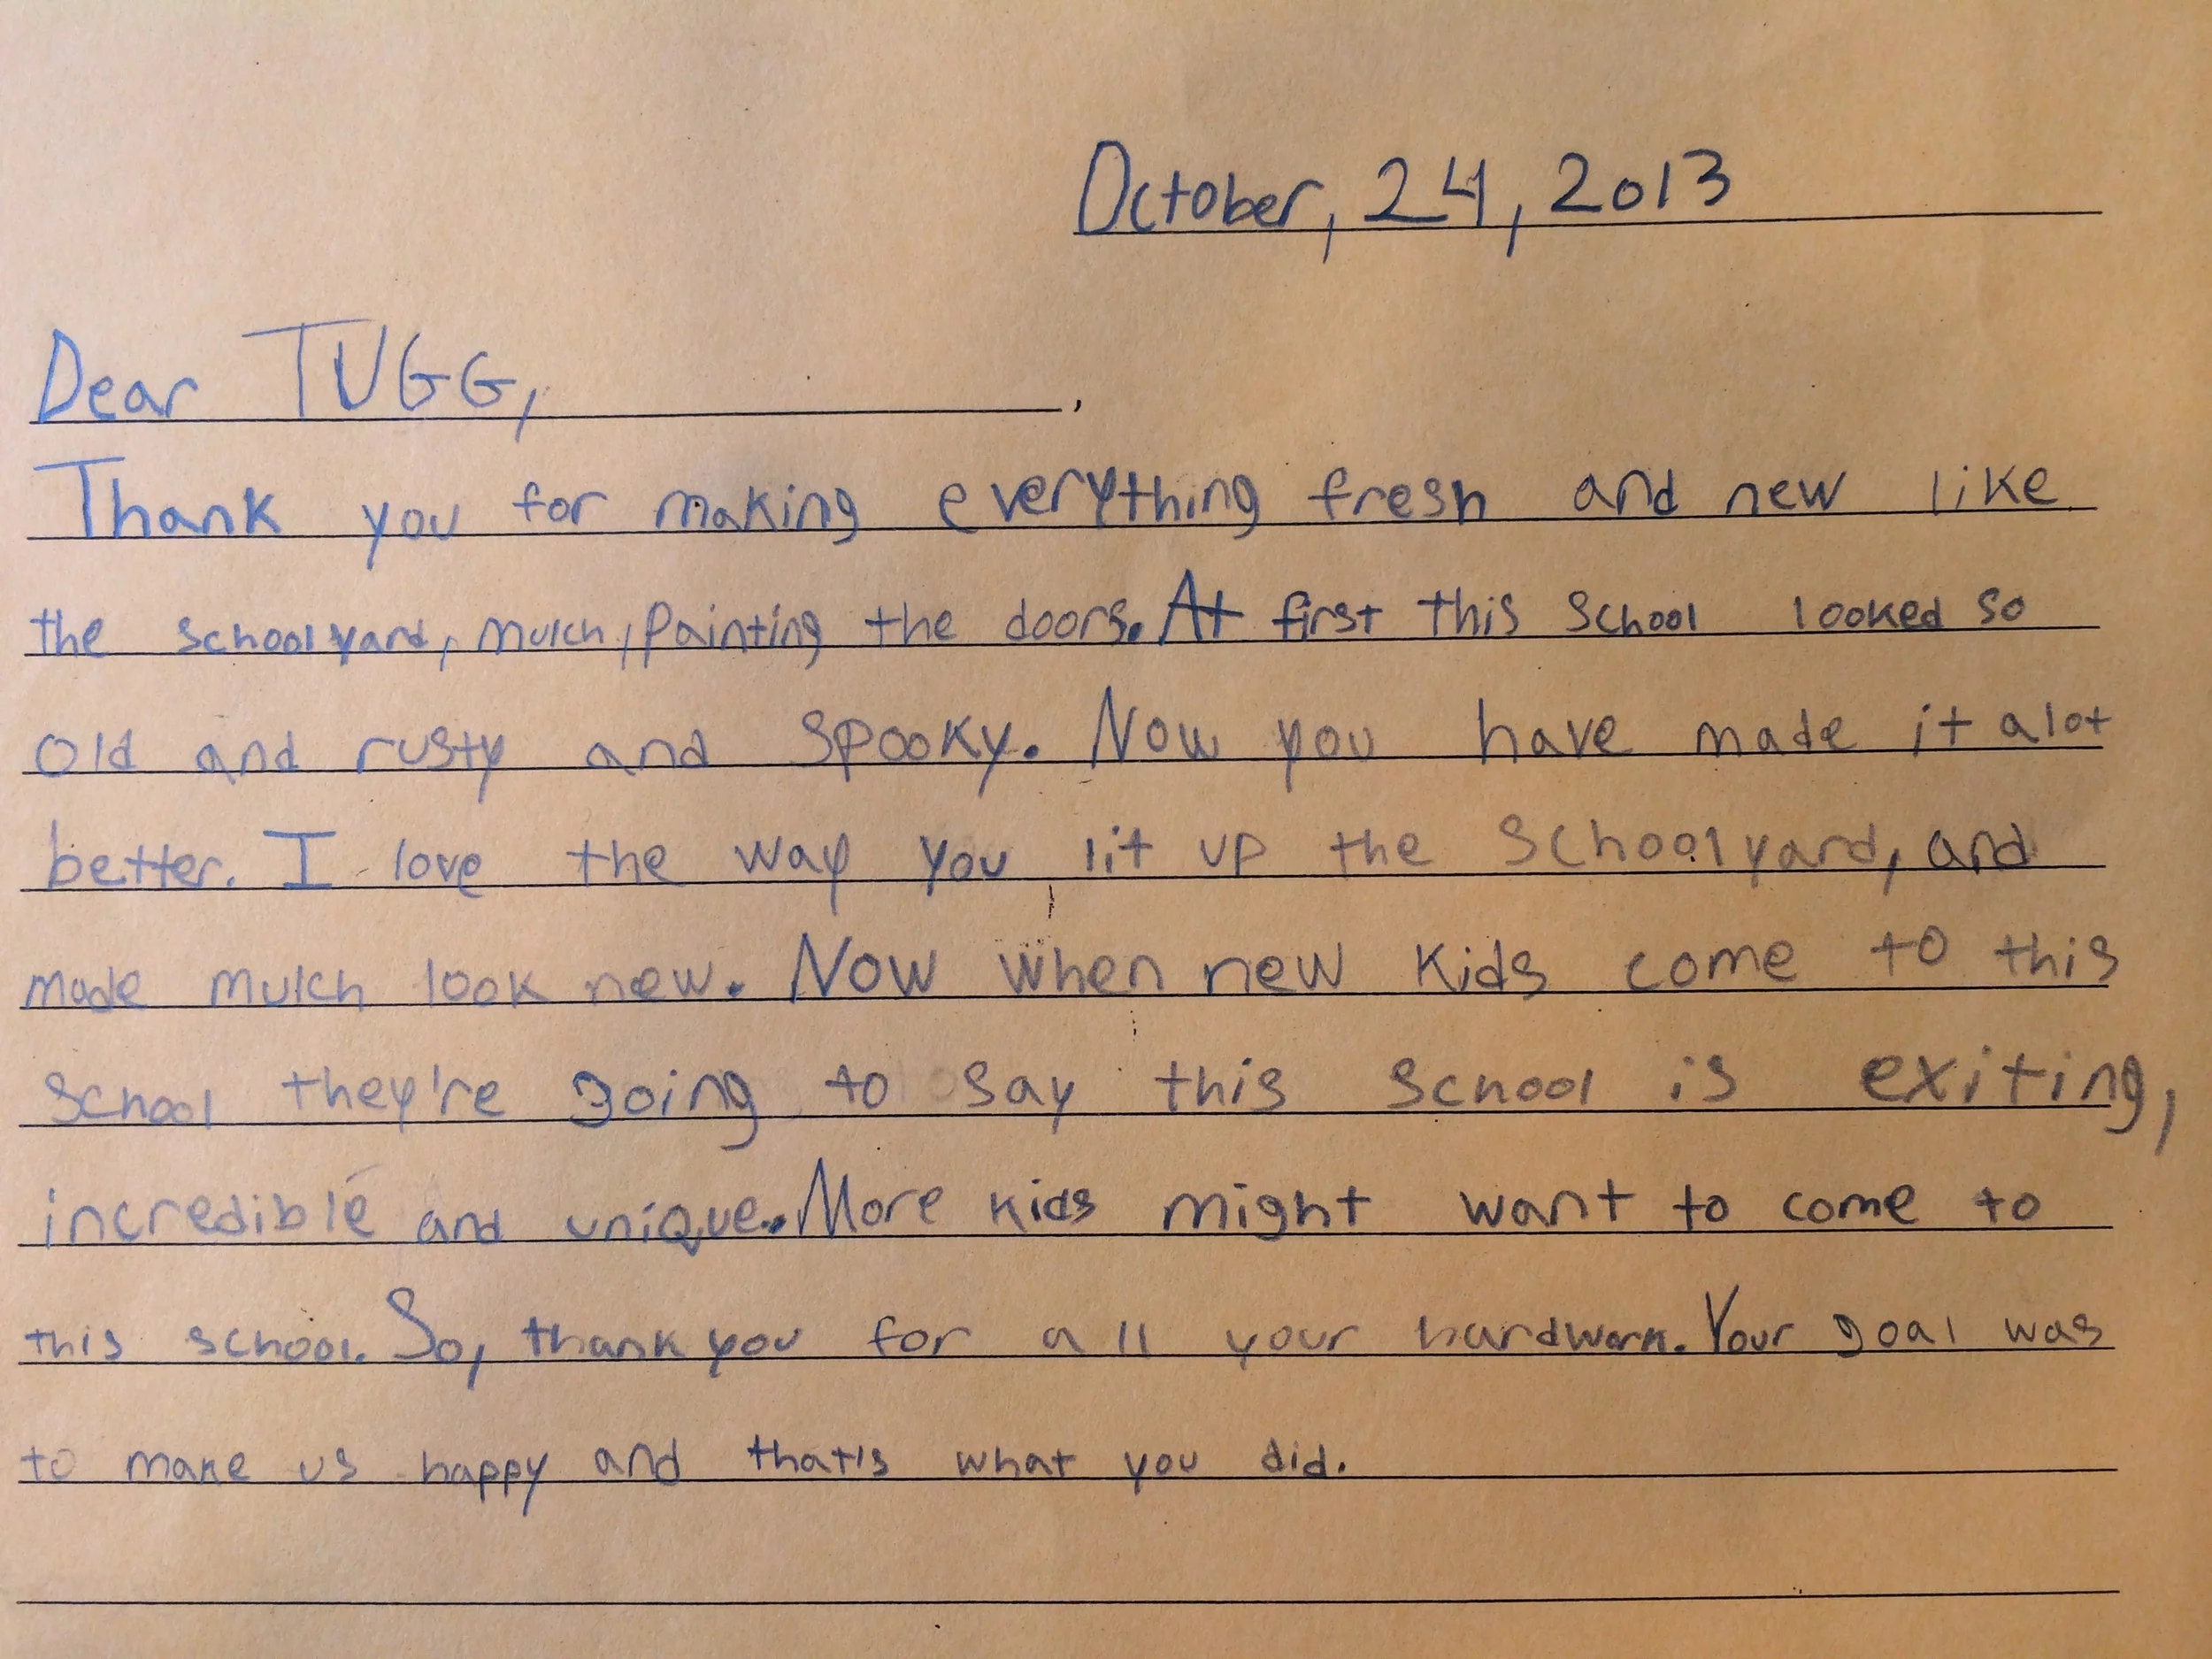 October, 24, 2013
Dear TUGG, ,
Thank you for making everything fresh and new like
the schoolyard, mulch, painting the doors. At first this school looked so
old and rusty and spooky. Now you have made it alot
better. I love the way you lit up the schoolyard, and
made mulch look new. Now when new kids come to this
school they're going to say this school is exiting,
incredible and unique. More kids might want to come to
this school. So, thank you for all your hardwork. Your goal was
to make us happy and that's what you did.